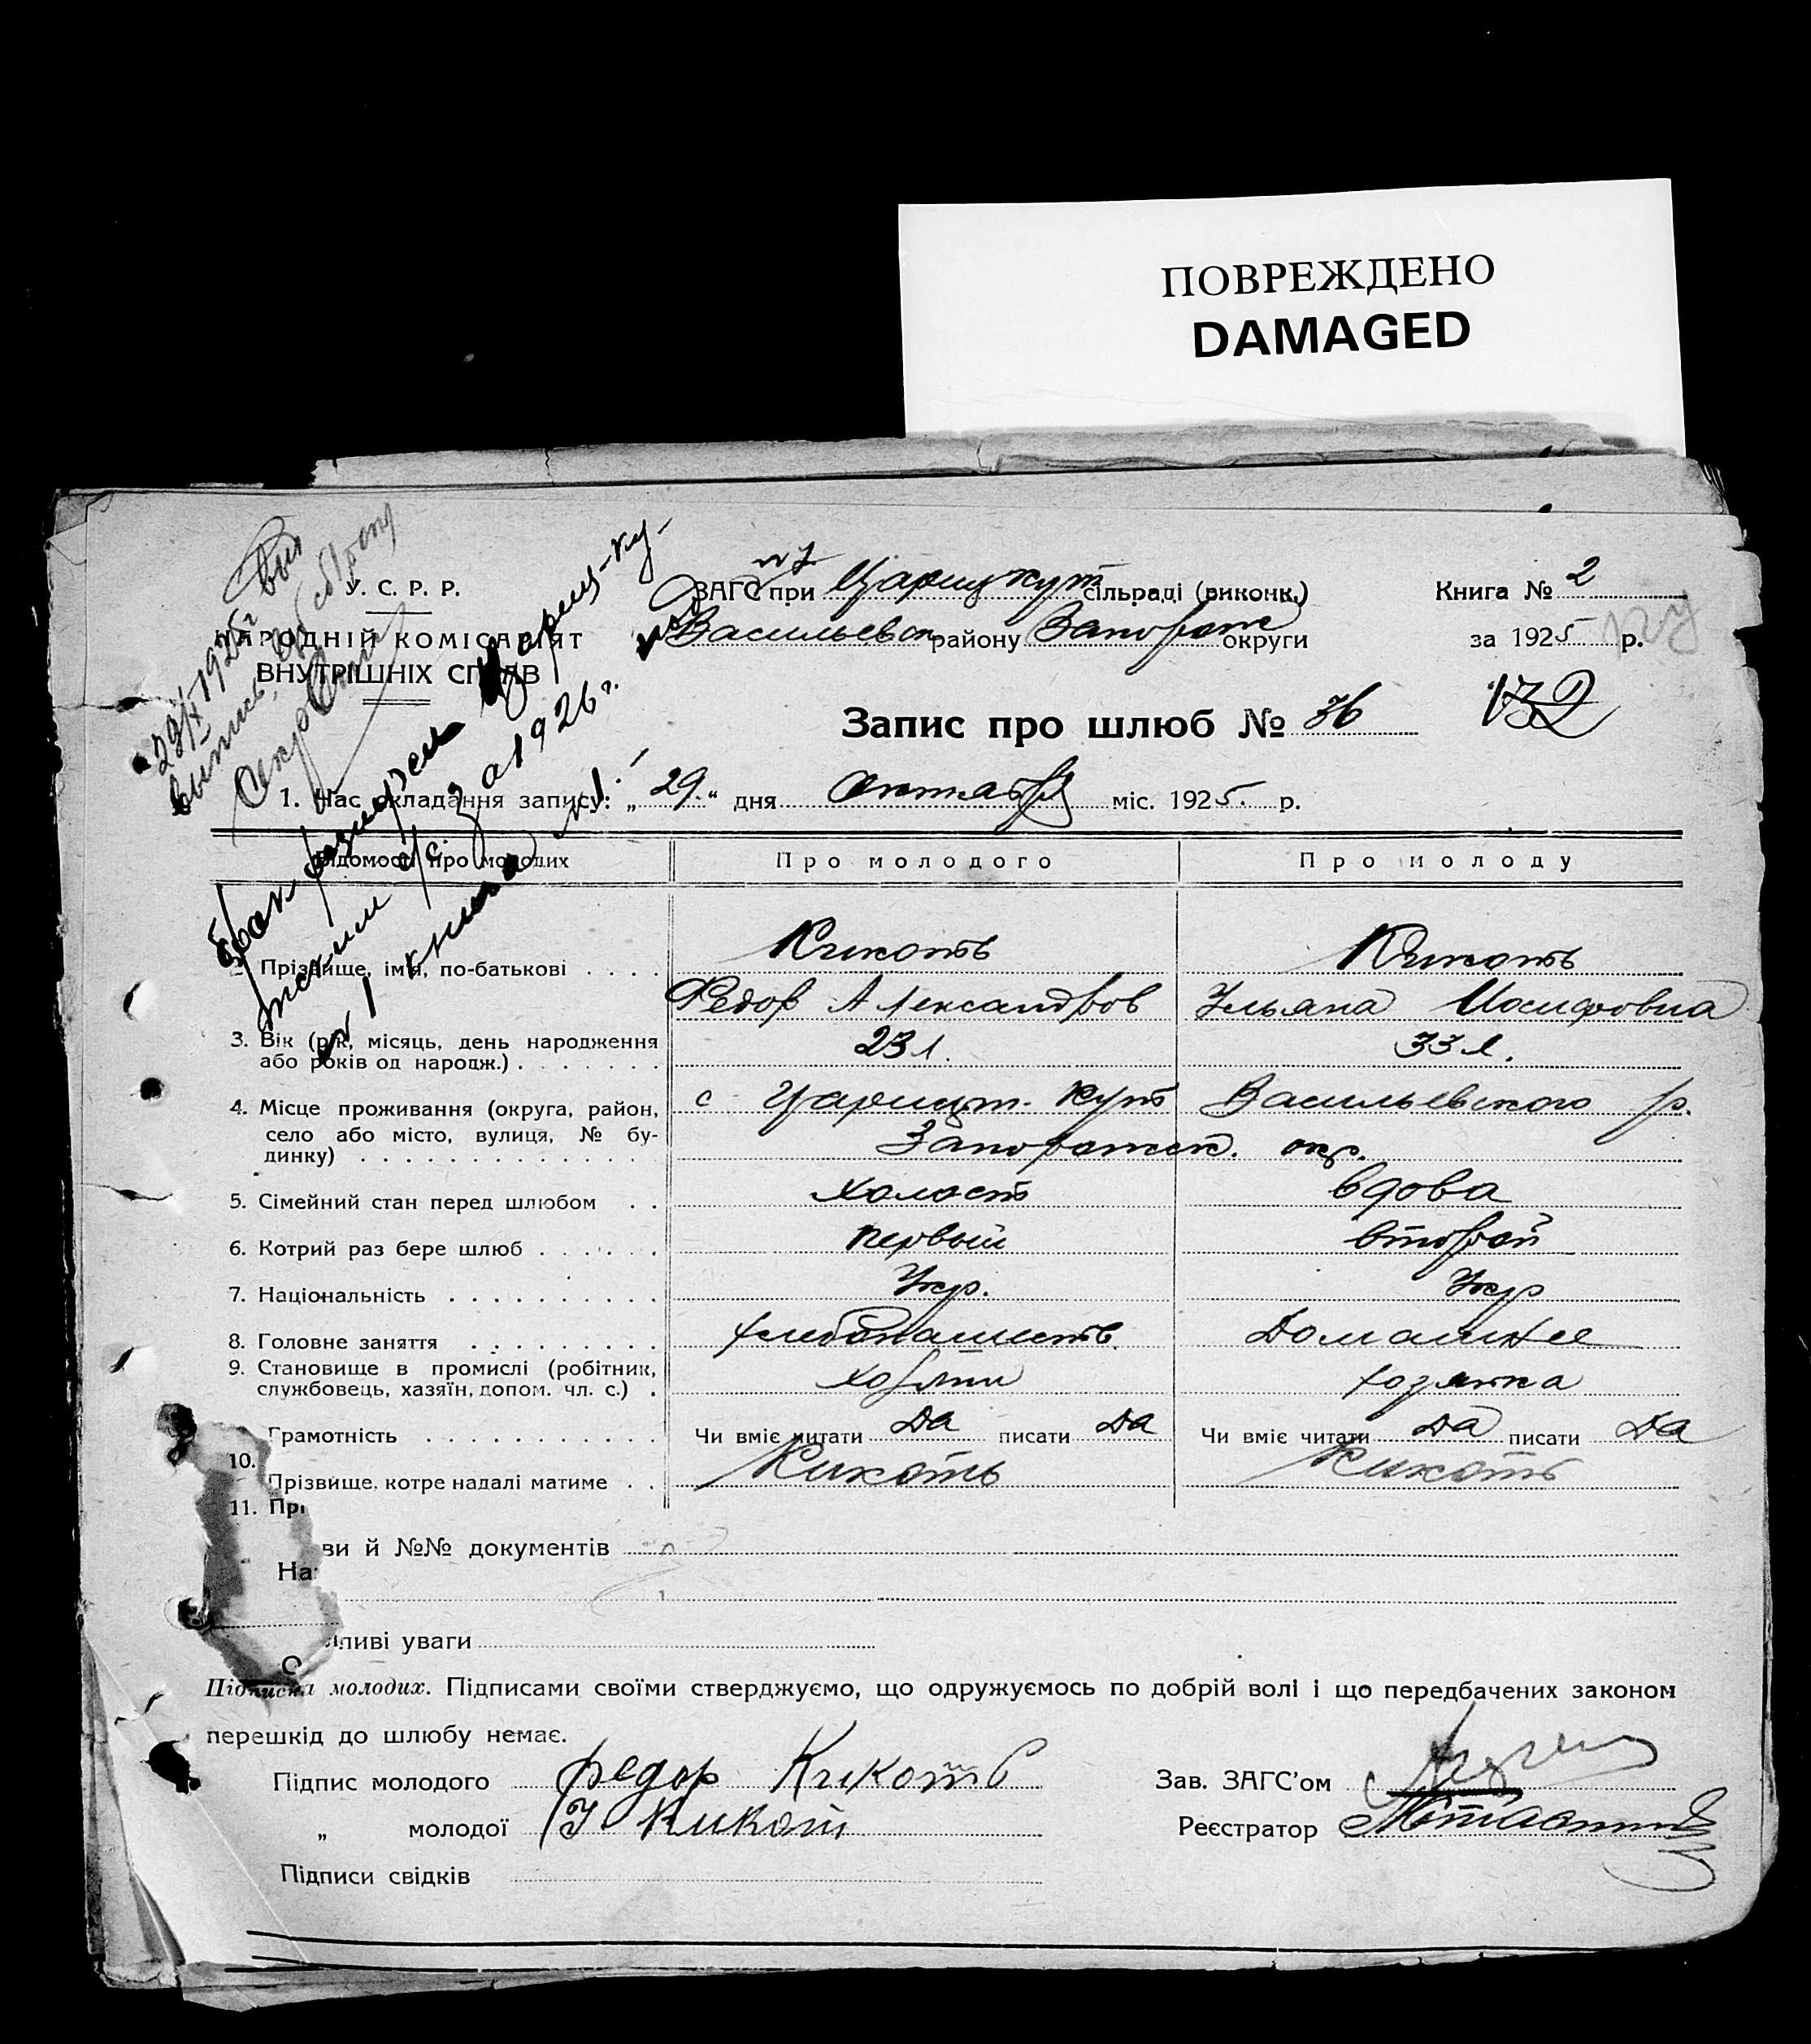 ПОВРЕЖДЕНО
DAMAGED
У. С. Р. Р.
НАРОДНІЙ КОМІСАРІЯТ
ВНУТРІШНІХ СПРАВ
ЗАГС при Царицкут сільраді (виконк.)
Васильевск району Запорож округи
Книга № 2
за 1925 р.
Запис про шлюб № 36
132
Брак расторжен Цариц-ку-
тским с/с. за 1926 г.
№ 1 книга №1.
1. Час складання запису: „ 29. “ дня Октября міс. 1925. р.
Відомости про молодих Про молодого Про молоду
2. Прізвище, імя, по-батькові Кикоть Кикоть
Федор Александров Ульяна Иосифовна
3. Вік (рік, місяць, день народження
або років од народж.) 23 л. 33 л.
4. Місце проживання (округа, район, с Царицын. Кут Васильевского р.
село або місто, вулиця, № бу-
динку) Запорожск. окр.
5. Сімейний стан перед шлюбом холост вдова
6. Котрий раз бере шлюб первый второй
7. Національність Укр. Укр
8. Головне заняття хлебопашеств. Домашнее
9. Становище в промислі (робітник,
службовець, хазяїн, допом. чл. с.) хозяин хозяйка
10. Грамотність Чи вміє читати Да писати Да Чи вміє читати Да писати Да
11. Прізвище, котре надалі матиме Кикоть Кикоть
При
На ви й №№ документів
О ливі уваги
Підписка молодих. Підписами своїми стверджуємо, що одружуємось по добрій волі і що передбачених законом
перешкід до шлюбу немає.
Підпис молодого федор Кикоть Зав. ЗАГС'ом
„ молодої У Кикоть Реєстратор
Підписи свідків